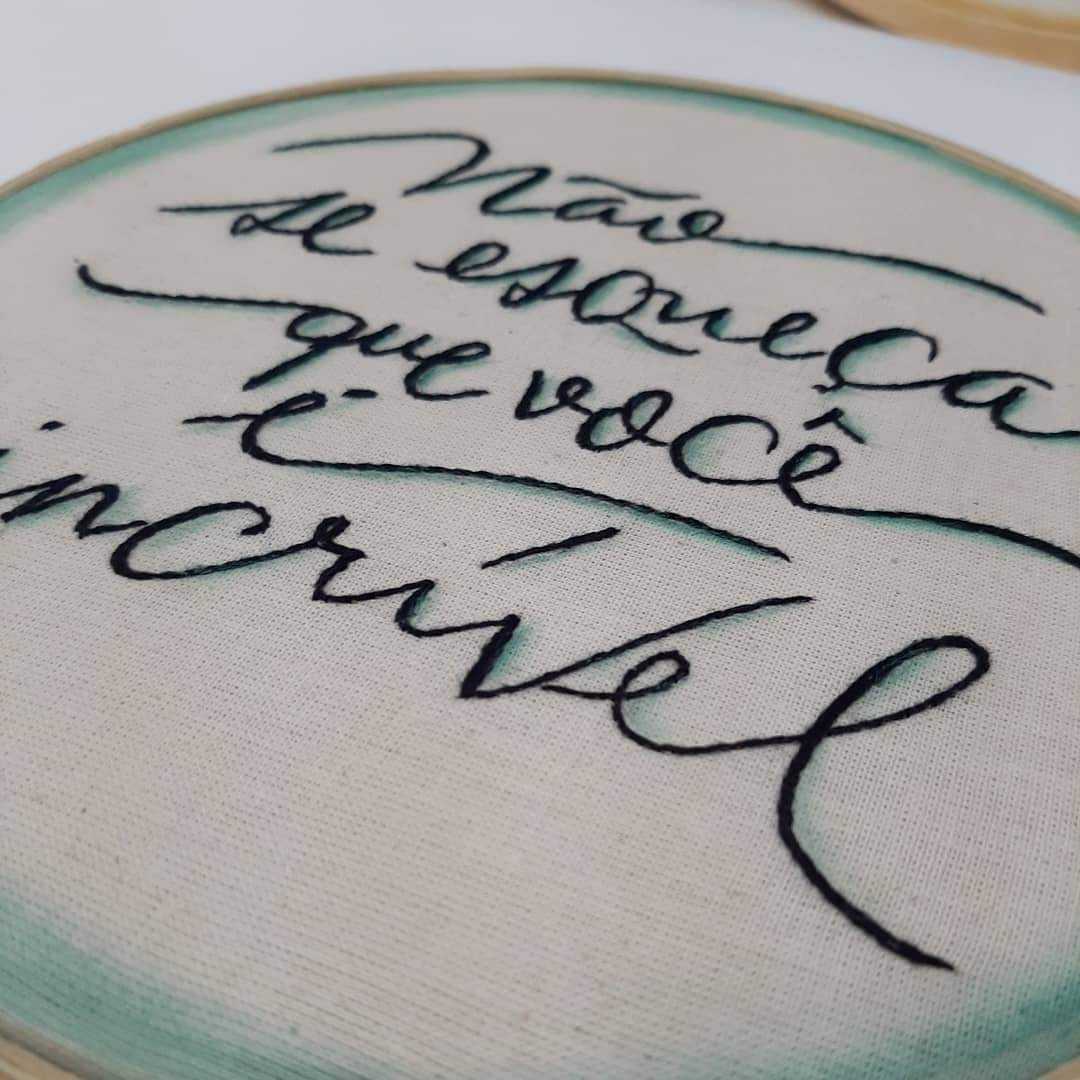 Não
se esqueça
que você
é
incrível